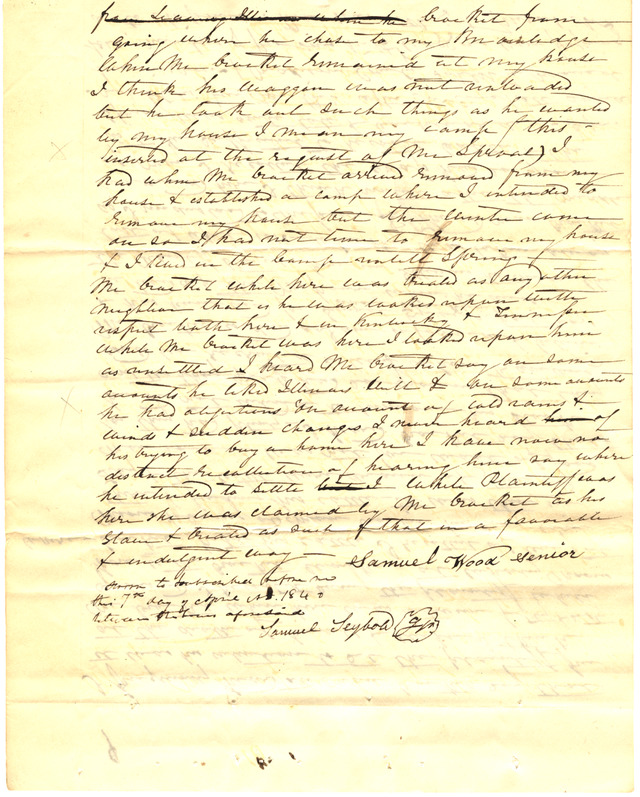 from Leaving Illinois when he Crocket from
going where he chose to my Knowledge
When Mr Crocket remained at my house
I think his waggon was not unloaded
but he took out such things as he wanted
by my house I mean my camp (this
inserted at the request of Mr Sproat) I
had when Mr Crocket arrived removed from my
house & established a camp where I intended to
remove my house but the winter came
on so I had not time to remove my house
& I lived in the Camp untill Spring
Mr Crocket while here was treated as any other
neighbor that is he was looked upon with
respect both here & in Kentucky &
While Mr Crocket was here I looked upon him
as unsettled I heard Mr Crocket say on some
accounts he liked Illinois well & on some accounts
he had objections on account of cold rains &
winds & sudden changes I never heard him of
his trying to buy a home here I have now no
distinct recollection of hearing him say where
he intended to settle but I While Plaintiff was
here she was claimed by Mr Crocket as his
Slave & treated as such & that in a favorable
& indulgent way
Samuel Wood Senior
Sworn to & subscribed before me
this 7th day of April AD. 1840
aforesaid
Samuel Seybold